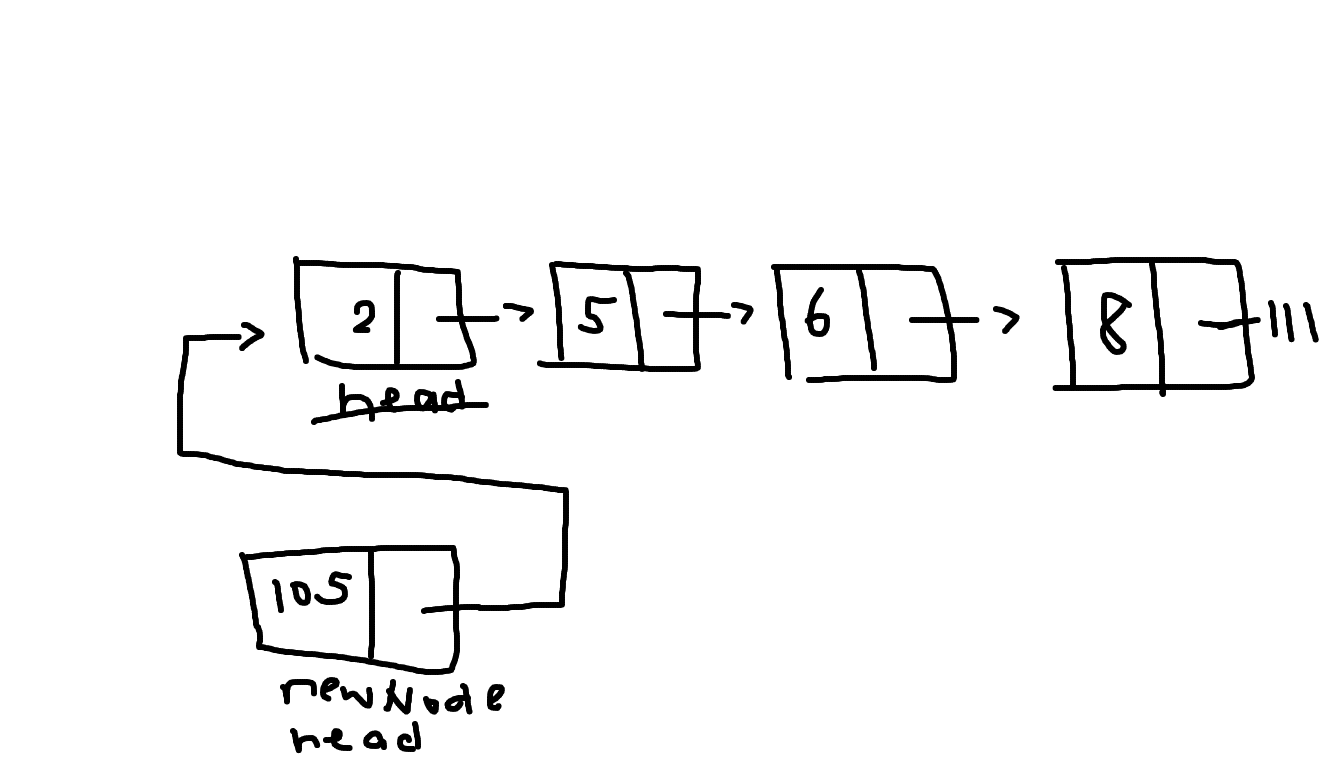 2 5 6 8
head
105
newNode
head